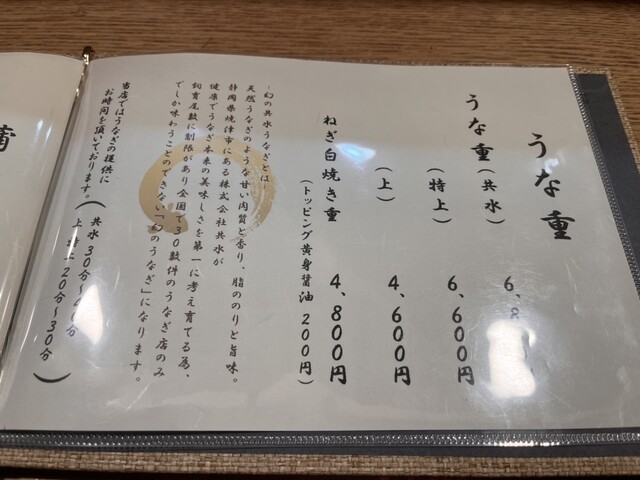 うな重
うな重(共水) 6,8
(特上) 6,600円
(上) 4,600円
ねぎ白焼き重 4,800円
(トッピング黄身醤油 200円)
-幻の共水うなぎとは-
天然うなぎのような甘い肉質と香り、脂ののりと旨味。
静岡県焼津市にある株式会社共水が
健康でうなぎ本来の美味しさを第一に考え育てる為、
飼育尾数に制限があり全国で30数件のうなぎ店のみ
でしか味わうことのできない「幻のうなぎ」になります。
当店ではうなぎの提供に
お時間を頂いております。
(共水 30分〜40分
上 特上 20分〜30分)